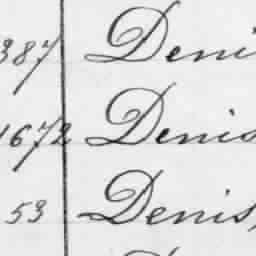 387 Deni
1672 Denis
53 Denis,